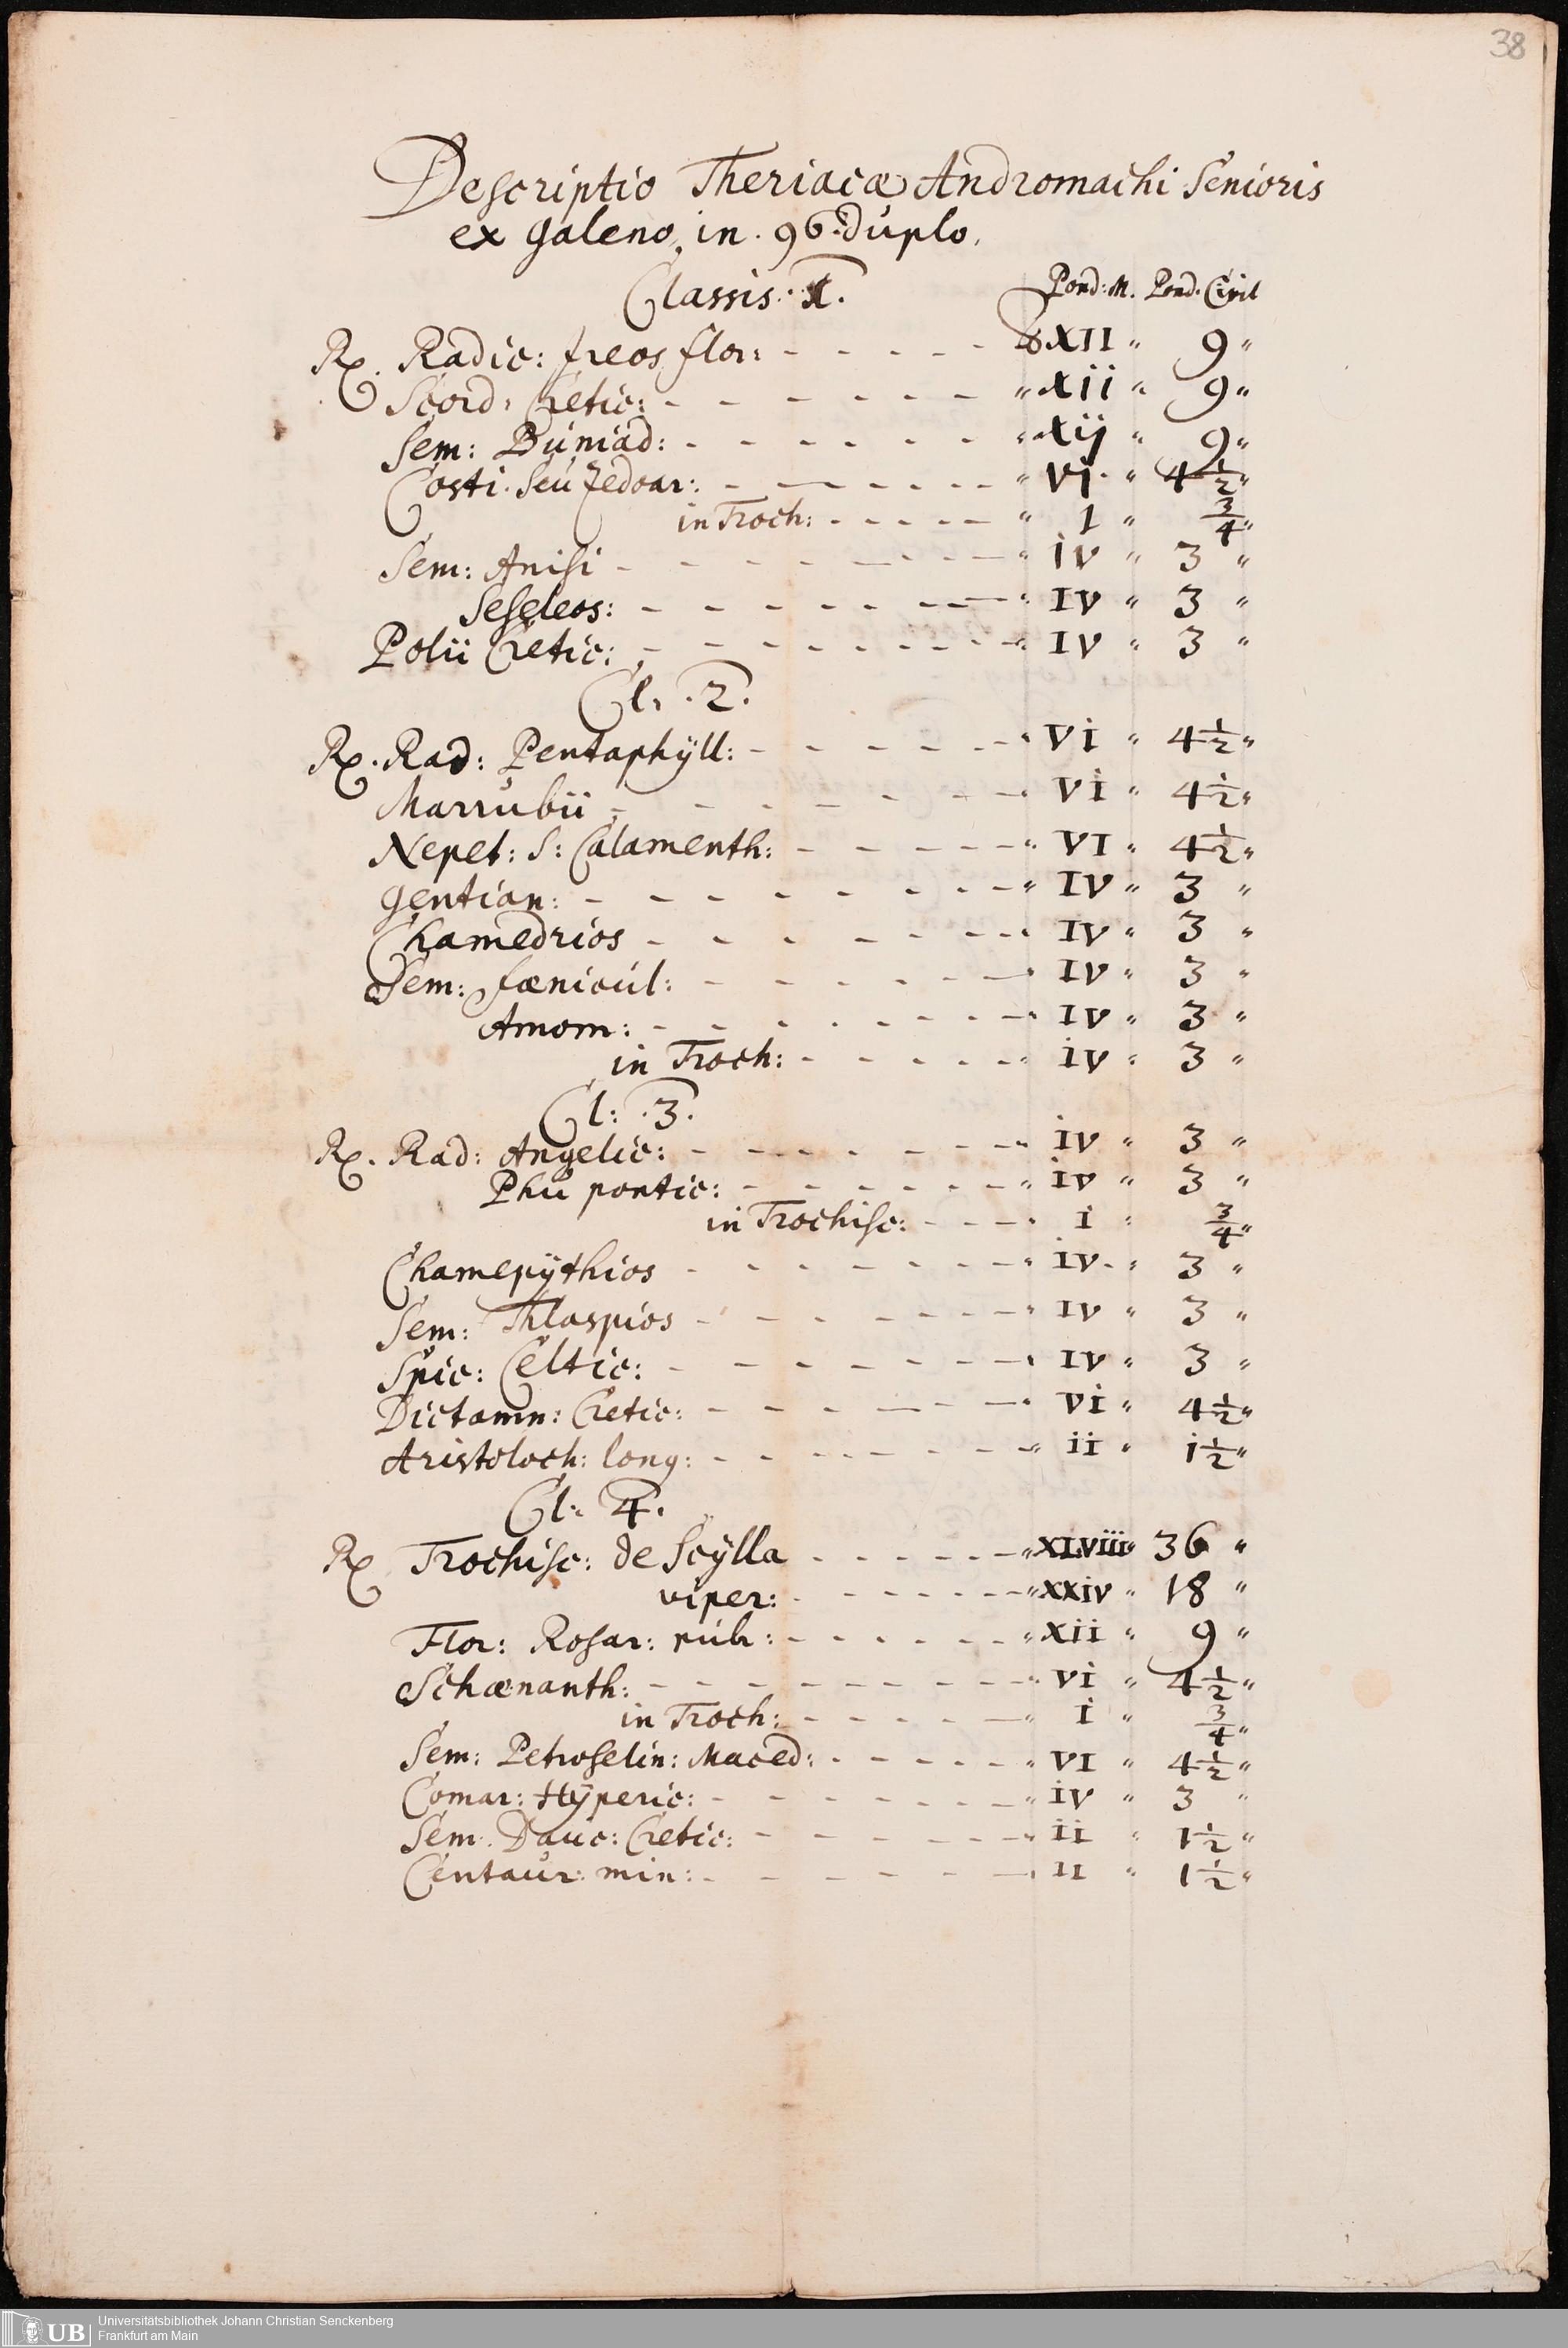 38
Descriptio Theriacæ Andromachi Senioris
ex Galeno, in. 96. duplo.
Classis. 1. Pond: M. Pond. Civil
Rx. Radic: Ireos flor: - - - - - XII " 9 "
Scord: Cretic: - - - - - - " Xii " 9 "
Sem: Buniad: - - - - - - " Xij " 9 "
Costi. Seu Zedoar: - - - - - - " Vi. " 4 1/2 "
in Troch: - - - - - " 1 " 3/4 "
Sem: Anisi - - - - - - - - " iv " 3 "
Seseleos: - - - - - - - " IV " 3 "
Polii Cretic: - - - - - - - - " IV " 3 "
Cl: . 2.
Rx. Rad: Pentaphÿll: - - - - - - " Vi " 4 1/2 "
Marrubii - - - - - - - " Vi " 4 1/2 "
Nepet: S: Calamenth: - - - - - " VI " 4 1/2 "
Gentian: - - - - - - - - - " IV " 3 "
Chamedrios - - - - - - - - " IV " 3 "
Sem: fœnicul: - - - - - - " IV " 3 "
Amom: - - - - - - - - - " IV " 3 "
in Troch: - - - - - - " iv " 3 "
Cl: . 3.
Rx. Rad: Angelic: - - - - - - - " iv " 3 "
Phu pontic: - - - - - - - " iv " 3 "
in Trochisc: - - - - " i " 3/4 "
Chamepÿthios - - - - - - - - " iv . " 3 "
Sem: Thlaspios - - - - - - - " IV " 3 "
Spic: Celtic: - - - - - - - - " IV " 3 "
Dictamn: Cretic: - - - - - - - " Vi " 4 1/2 "
Aristoloch: long: - - - - - - - " ii " i 1/2 "
Cl: 4.
Rx Trochisc: de Scÿlla - - - - - - " XLViii " 36 "
viper: - - - - - - " xxiv " 18 "
Flor: Rosar: rub: - - - - - - " xii " 9 "
Schænanth: - - - - - - - - - " vi " 4 1/2 "
in Troch: - - - - - - " i " 3/4 "
Sem: Petroselin: Maced: - - - - - " VI " 4 1/2 "
Comar: Hÿperic: - - - - - - - - " iv " 3 "
Sem. Dauc: Cretic: - - - - - - - " ii " 1 1/2 "
Centaur: min: - - - - - - - " II " 1 1/2 "
UB
Universitätsbibliothek Johann Christian Senckenberg
Frankfurt am Main